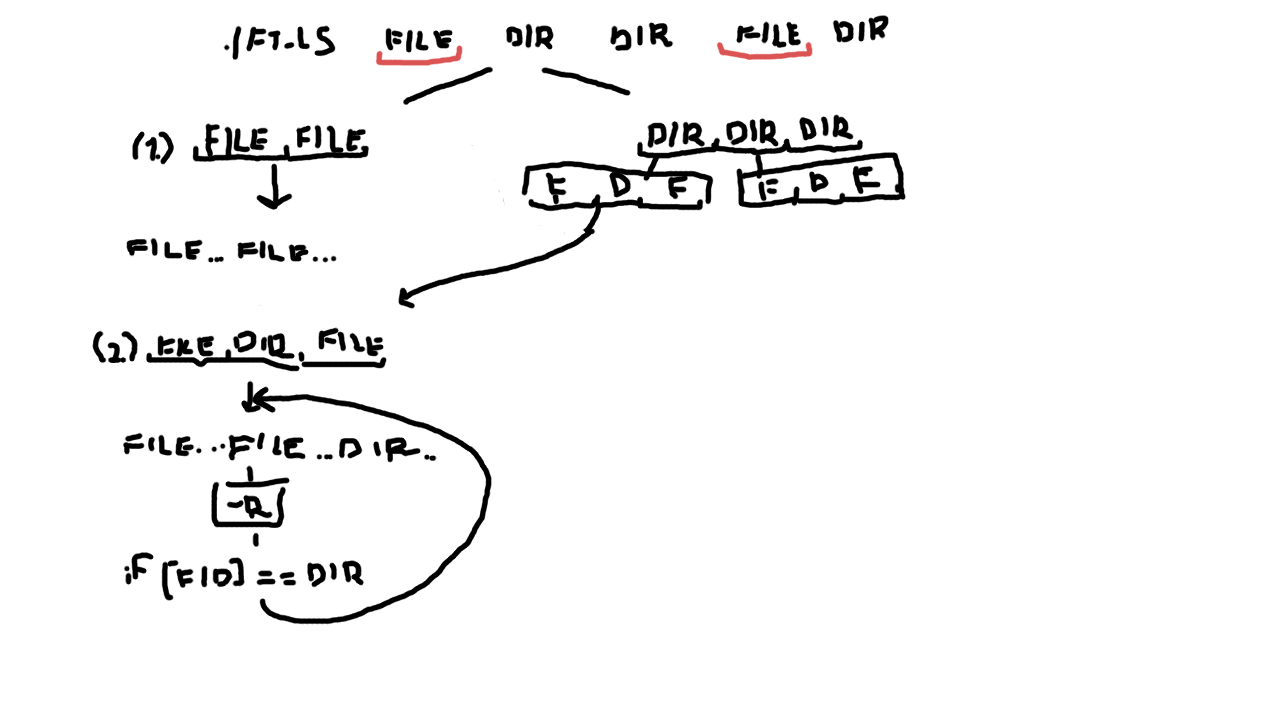 ./FT_LS FILE DIR DIR FILE DIR
(1.) FILE, FILE,
DIR, DIR, DIR
F D F
F D F
FILE.. FILE...
(2.) FILE, DIR, FILE
FILE...FILE...DIR..
-R
iF [F|D] == DIR